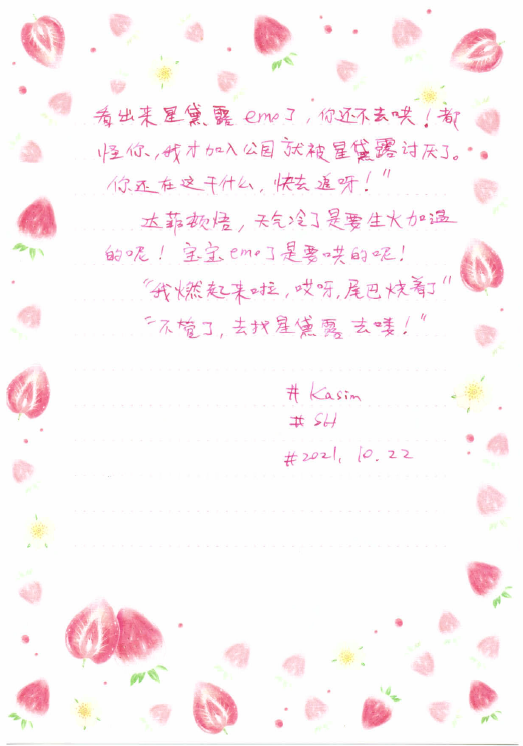 看出来星黛露emo了，你还不去哄！都
怪你，我才加入公园就被星黛露讨厌了。
你还在这干什么，快去追呀！”
达菲顿悟，天气冷了是要生火加温
的呢！宝宝emo了是要哄的呢！
“我燃起来啦，哎呀，尾巴烧着了”
“不管了，去找星黛露去喽！”
# Kasim
# SH
#2021. 10. 22